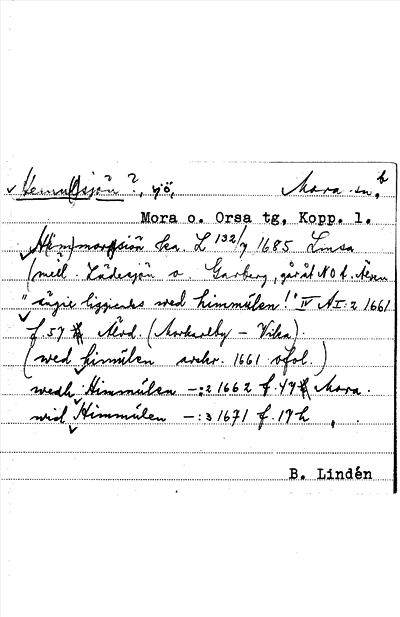 Hemulsjön?, sjö, Mora sn.
Mora o. Orsa tg, Kopp. l.
ka. L 132/7 1685 Limsa
(mell. Lädesjön o. Garberg, går åt NO t.
"ängie liggendes wed himmúlen!" IV AI:2 1661
f. 57 Älvd. (Morkarlby – Vika).
(wed himúlen avskr. 1661 ofol.)
wedh Himmúlen –:2 1662 f. 47 Mora.
wid Himmúlen –:3 1671 f. 17 h
B. Lindén